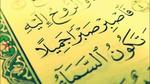 وَٱلرُّوحُ إِلَيْهِ
فَٱصْبِرْ صَبْرًا جَمِيلًا
تَكُونُ ٱلسَّمَآءُ